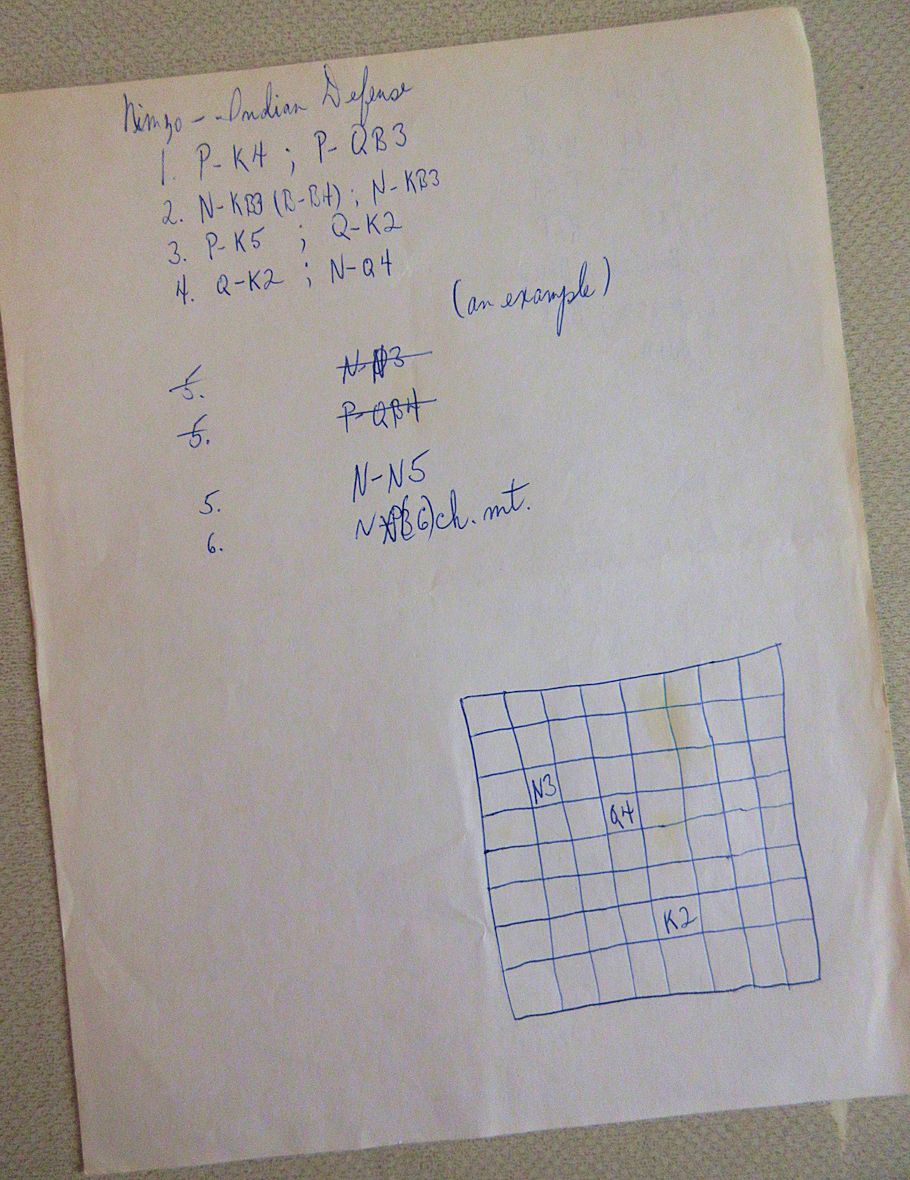 Nimzo-Indian Defense
1. P-K4 ; P-QB3
2. N-KB3 (B-B4) ; N-KB3
3. P-K5 ; Q-K2
4. Q-K2 ; N-Q4
(an example)
5. N-N3
5. P-QB4
5. N-N5
6. NxP(B6) ch. mt.
N3
Q4
K2